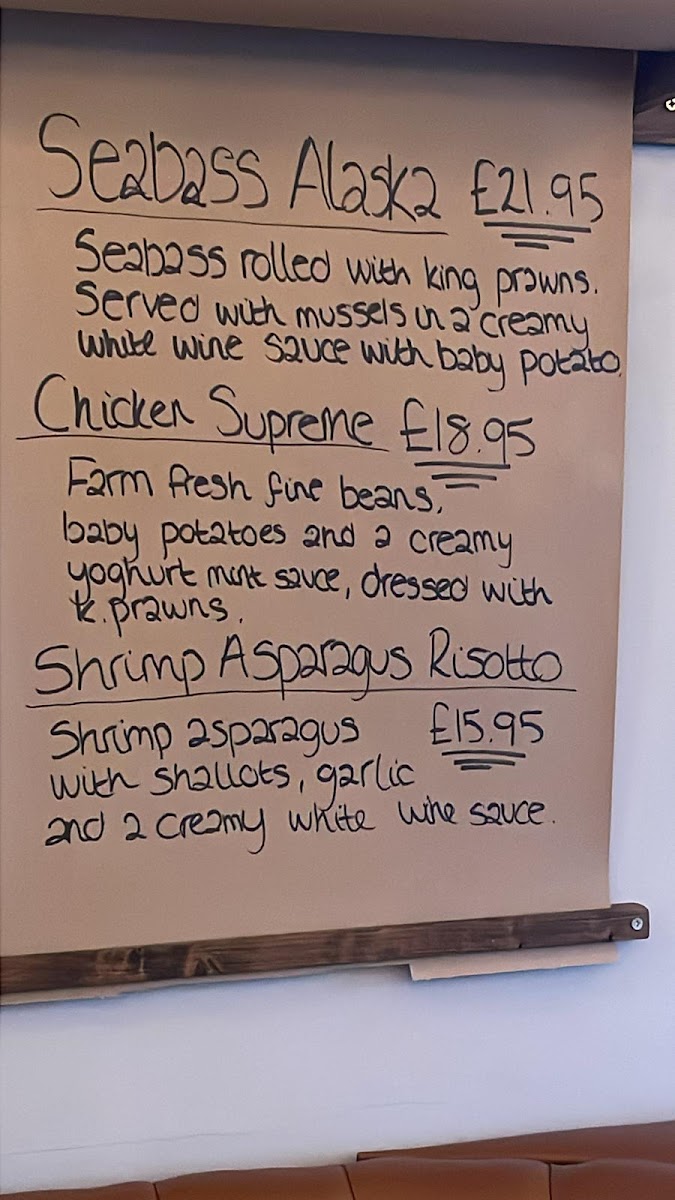 Seabass Alaska £21.95
Seabass rolled with king prawns.
Served with mussels in a creamy
white wine sauce with baby potato.
Chicken Supreme £18.95
Farm fresh fine beans,
baby potatoes and a creamy
yoghurt mint sauce, dressed with
k. prawns.
Shrimp Asparagus Risotto
Shrimp asparagus £15.95
with shallots, garlic
and a creamy white wine sauce.